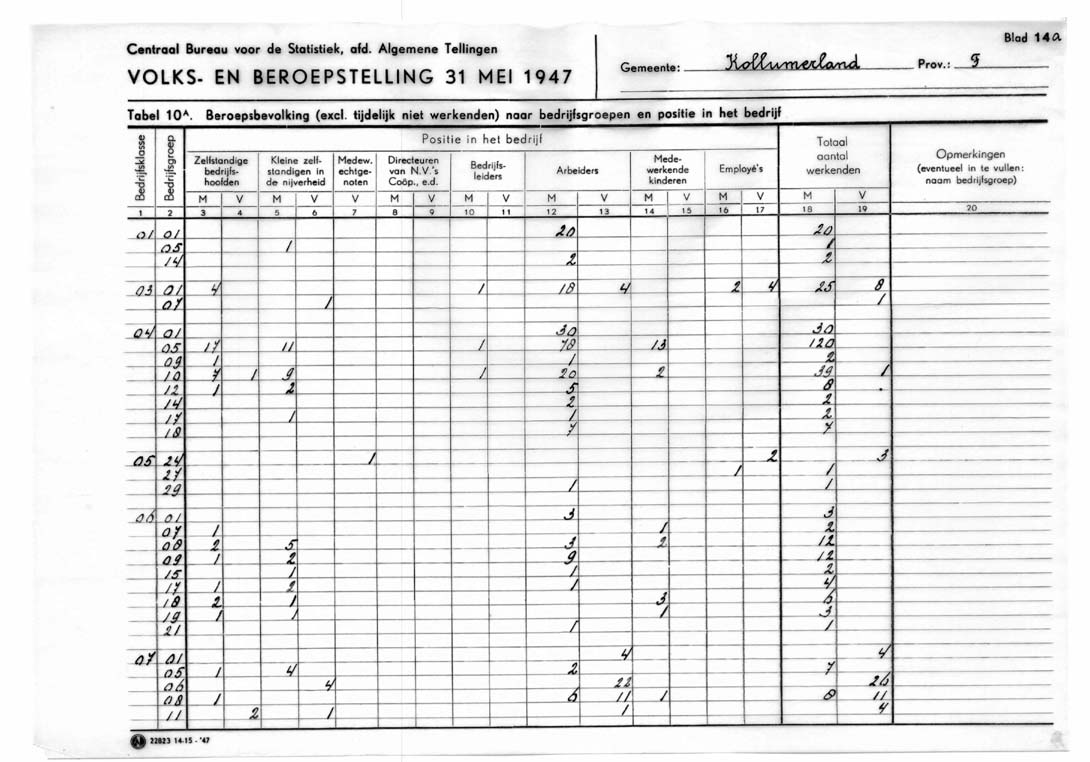 Blad 14a
Centraal Bureau voor de Statistiek, afd. Algemene Tellingen
VOLKS- EN BEROEPSTELLING 31 MEI 1947
Gemeente: Kollumerland Prov.: F
Tabel 10A. Beroepsbevolking (excl. tijdelijk niet werkenden) naar bedrijfsgroepen en positie in het bedrijf
Bedrijfsklasse Bedrijfsgroep Positie in het bedrijf Totaal aantal werkenden Opmerkingen (eventueel in te vullen: naam bedrijfsgroep)
Zelfstandige bedrijfs-hoofden Kleine zelf-standigen in de nijverheid Medew. echtge-noten Directeuren van N.V.'s Coöp., e.d. Bedrijfs-leiders Arbeiders Mede-werkende kinderen Employé's
M V M V V M V M V M V M V M V M V
1 2 3 4 5 6 7 8 9 10 11 12 13 14 15 16 17 18 19 20
01 01 20 20
05 1 1
14 2 2
03 01 4 1 18 4 2 4 25 8
07 1 1
04 01 30 30
05 17 11 1 78 13 120
09 1 1 2
10 7 1 9 1 20 2 39 1
12 1 2 5 8
14 2 2
17 1 1 2
18 7 7
05 24 1 2 3
27 1 1
29 1 1
06 01 3 3
07 1 1 2
08 2 5 3 2 12
09 1 2 9 12
15 1 1 2
17 1 2 1 4
18 2 1 3 6
19 1 1 1 3
21 1 1
07 01 4 4
05 1 4 2 7
06 4 22 26
08 1 6 11 1 8 11
11 2 1 1 4
22823 14-15 - '47